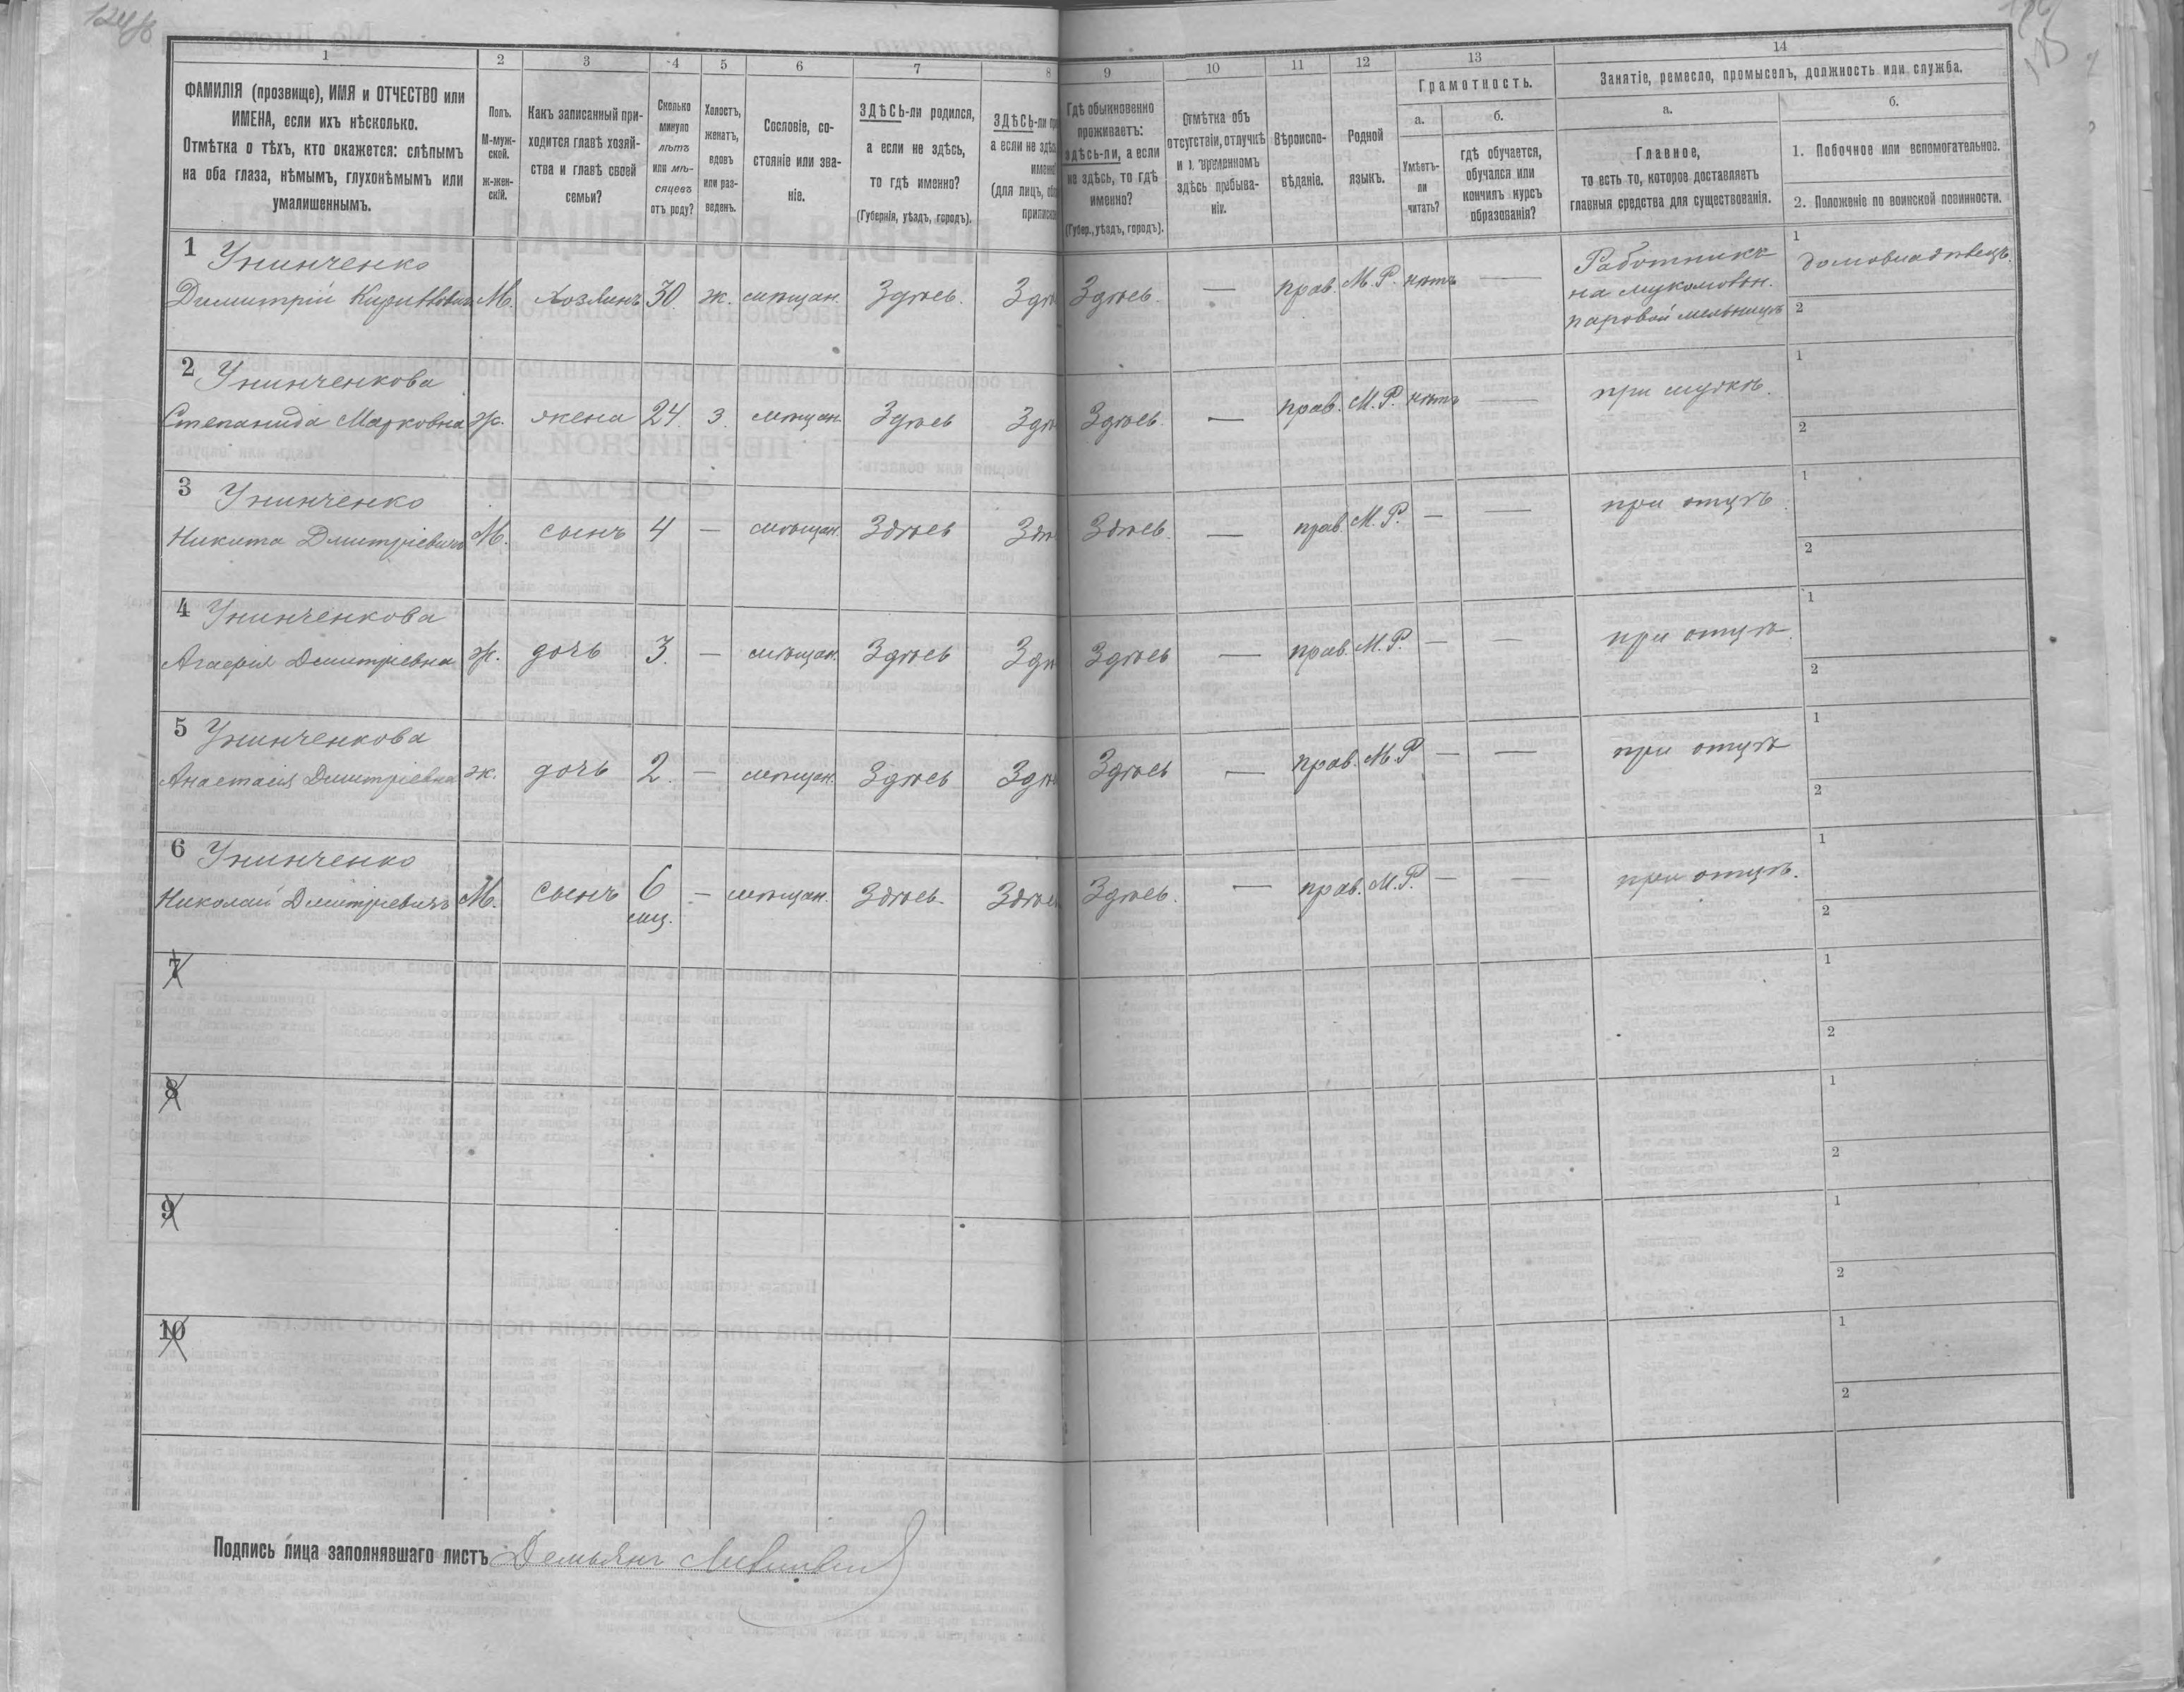 1
2
3
4
5
6
7
8
9
10
11
12
13
14
ФАМИЛІЯ (прозвище), ИМЯ и ОТЧЕСТВО или
ИМЕНА, если ихъ нѣсколько.
Отмѣтка о тѣхъ, кто окажется: слѣпымъ
на оба глаза, нѣмымъ, глухонѣмымъ или
умалишеннымъ.
Полъ.
М-муж-
ской.
Ж-жен-
скій.
Какъ записанный при-
ходится главѣ хозяй-
ства и главѣ своей
семьи?
Сколько
минуло
лѣтъ
или мѣ-
сяцевъ
отъ роду?
Холостъ,
женатъ,
вдовъ
или раз-
веденъ.
Сословіе, со-
стояніе или зва-
ніе.
ЗДѢСЬ-ли родился,
а если не здѣсь,
то гдѣ именно?
(Губернія, уѣздъ, городъ).
ЗДѢСЬ-ли
а если не
(для лицъ,
Гдѣ обыкновенно
проживаетъ:
здѣсь-ли, а если
не здѣсь, то гдѣ
именно?
(Губер., уѣздъ, городъ).
Отмѣтка объ
отсутствіи, отлучкѣ
и о временномъ
здѣсь пребыва-
ніи.
Вѣроиспо-
вѣданіе.
Родной
языкъ.
Грамотность.
а.
б.
Умѣетъ-
ли
читать?
гдѣ обучается,
обучался или
кончилъ курсъ
образованія?
Занятіе, ремесло, промыселъ, должность или служба.
а.
б.
Главное,
то есть то, которое доставляетъ
главныя средства для существованія.
1. Побочное или вспомогательное.
2. Положеніе по воинской повинности.
1 Унинченко Работникъ 1 домовладѣлецъ.
Димитрій М. Хозяинъ 30 ж. мѣщан. Здѣсь. Здѣ Здѣсь. — прав. М.Р. нѣтъ — на мукомольн.
паровой мельницѣ 2
2 Унинченкова 1
Степанида Марковна ж. жена 24 з. мѣщан. Здѣсь Здѣ Здѣсь. — прав. М.Р. нѣтъ — при мужѣ.
2
3 Унинченко 1
Никита Дмитріевичъ М. сынъ 4 — мѣщан. Здѣсь Здѣ Здѣсь. — прав. М.Р. — — при отцѣ.
2
4 Унинченкова 1
Агафія Дмитріевна ж. дочь 3. — мѣщан. Здѣсь Здѣ Здѣсь — прав. М.Р. — — при отцѣ.
2
5 Унинченкова 1
Анастасія Дмитріевна ж. дочь 2. — мѣщан. Здѣсь Здѣ Здѣсь — прав. М.Р — — при отцѣ
2
6 Унинченко 1
Николай Дмитріевичъ М. сынъ 6 — мѣщан. Здѣсь. Здѣс Здѣсь. — прав. М.Р. — — при отцѣ.
мц. 2
7 1
2
8 1
2
9 1
2
10 1
2
Подпись лица заполнявшаго листъ Демьянъ